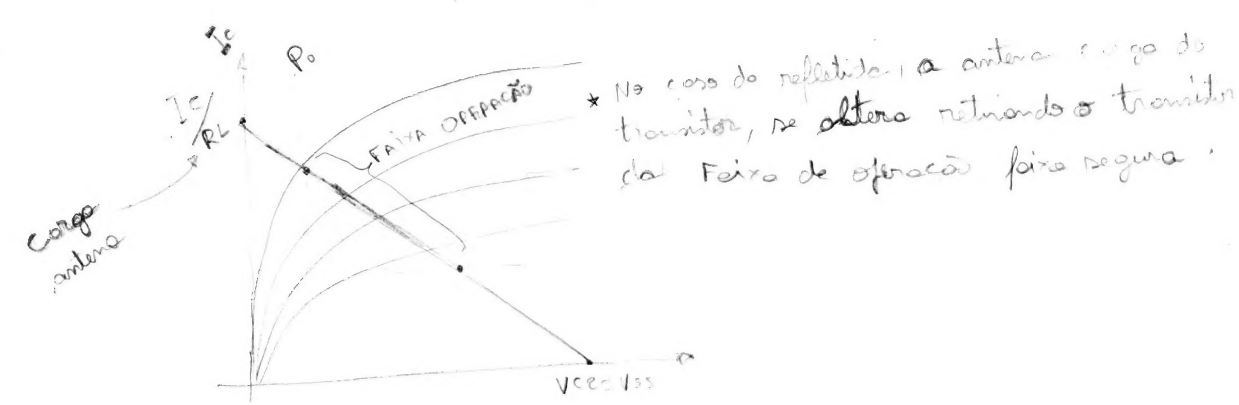 Ic
Po
Ic/RL
FAIXA OPERAÇÃO
carga
antena
* No caso da refletida, a antena carga do
transistor, se altera retirando o transistor
da Faixa de operação faixa segura.